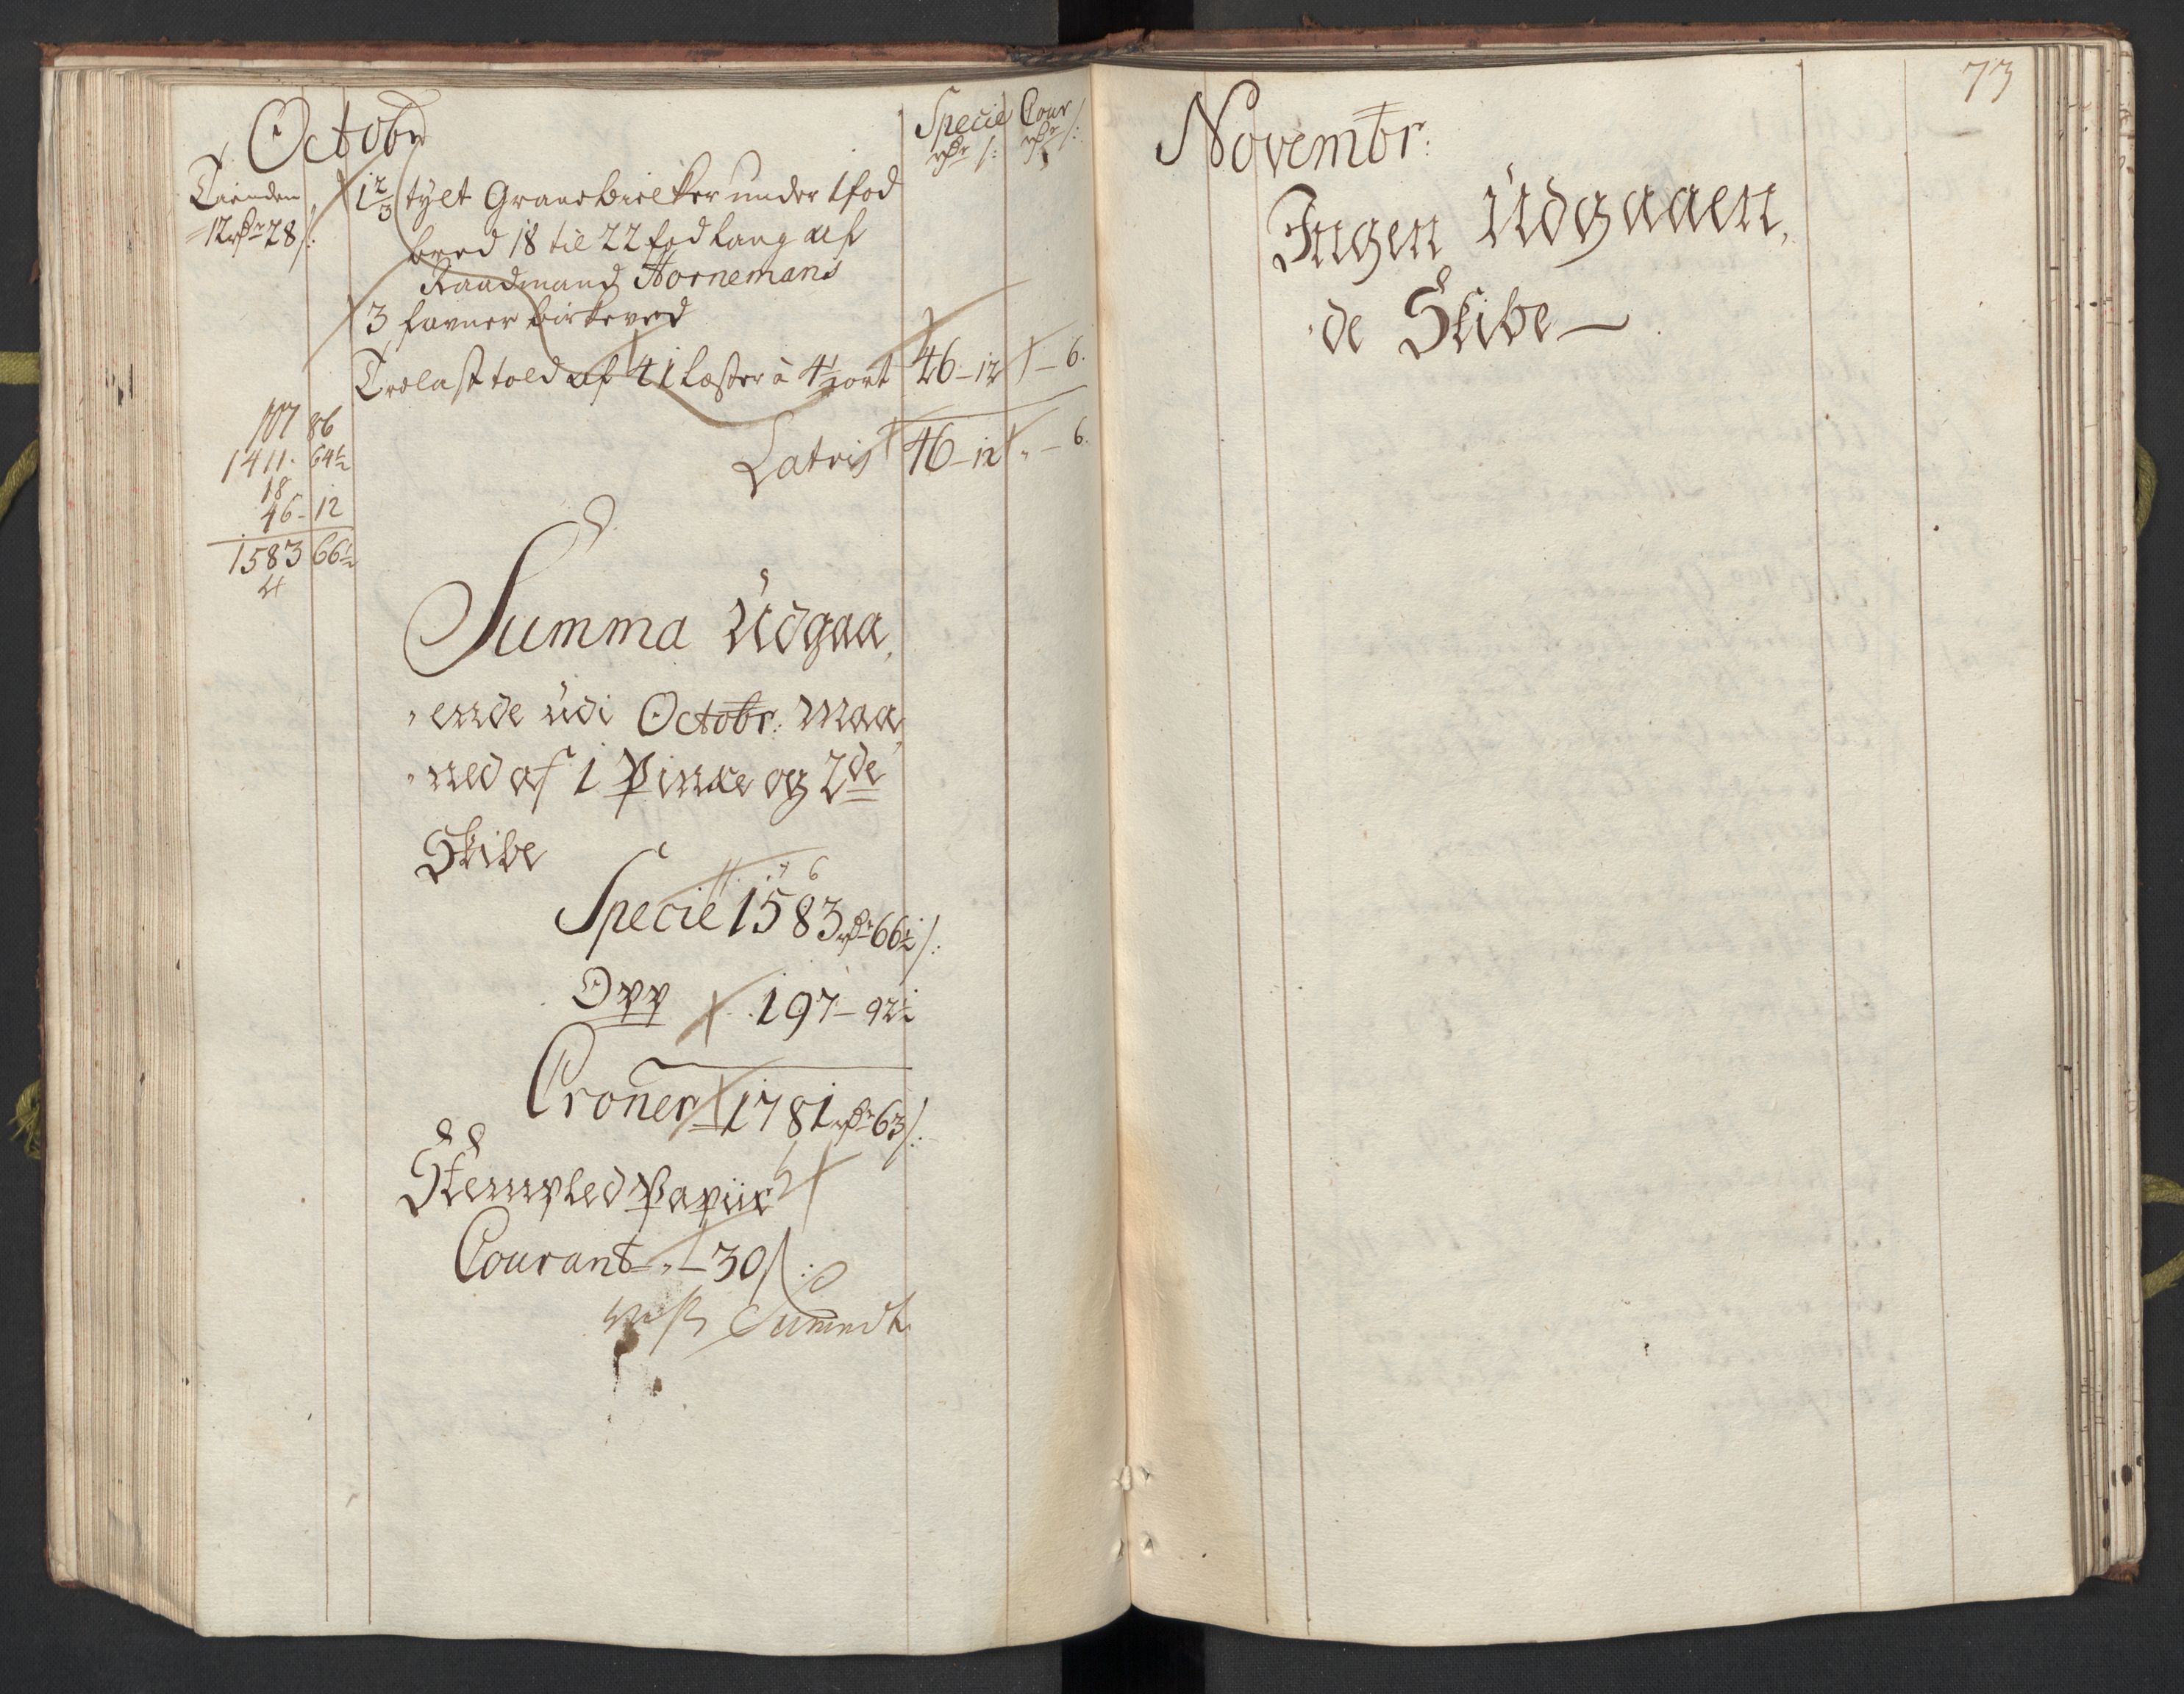 Octobr
Specie Cour
rdr ß: rdr ß:
Tienden
12 rdr 28 ß:
1 2/3 tylt Granebielker under 1 fod
bred 18 til 22 fod lang af
Raadmand Hornemans
3 favner birkeved
Trælast told af 41 læster à 4 1/2 ort 46 - 12 " - 6.
Latris 46 - 12 " - 6.
107 86
1411. 64 1/2
18
46 - 12
1583 66 1/2
Summa Udgaa,
,ende udi Octobr: Maa,
,ned af 1 Pinke og 2de
Skibe
Specie 1583 rdr 66 1/2 ß:
Opp 197 - 92 1/2
Croner 1781 rdr 63 ß:
Stempled Papiir
Courant " - 30 ß:
73
Novembr:
Ingen Udgaaen,
,de Skibe —